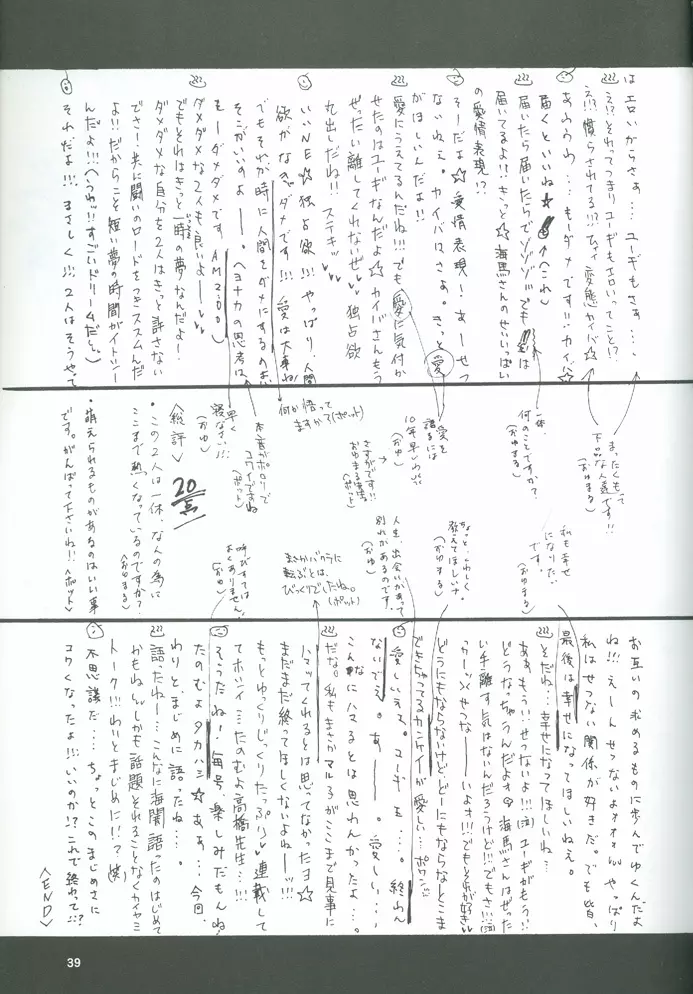 はエロいからさぁ…ユーギもさぁ…、
え!?それってつまりユーギもエロいってこと!?
え!!慣らされてる!!?ひぃィ 変態カイバ☆
あううわ…もーダメです!!カイバ☆
届くといいね☆ (これ)
届いたら届いたらでゾゾゾ!!でも は
届いてるよ!!きっと☆海馬さんのせいいっぱい
の愛情表現!?
そーだよ☆愛情表現!あーせつ
ないねぇ。カイバはさぁ。きっと愛
がほしいんだよ!!
愛にうえてるんだね!!!でも愛に気付か
せたのはユーギなんだよ☆カイバさんもう
ぜったい離してくれなぜ 独占欲
丸出しだね!!ステキ
いいNE☆独占欲!!!やっぱり、人間
欲がなきゃダメです!!!愛は大事ね
でもそれが時に人間をダメにするのよ
そこがいいのよー。ヘヨナカの思考は、
もーダメダメです AM2:00)
ダメダメな2人も良いよー
でもそれはきっと一時の夢なんだよー!
ダメダメな自分を2人はきっと許さない
でさ!共に闘いのロードをつきススムんだ
よ!!だからこそ短い夢の時間がイトシー
んだよ!!!(うわッ!!すごいドリームだぜ)
それだよ!!!まさしく!!2人はそうやって
まったくもって
下品な人達です!!
(おゆまる)
一体、
何のことですか?
(おゆまる)
愛を
語るには
10年早いわ!!
(おゆ)
さすがです!!
おゆまる先生
(ポット)
何か悟って
ますかで(ポット)
本音がポロリで
コワイですね
(ポット)
早く
寝なさい!!!
(おゆ)
<総評> 20点
・この2人は一体、なんの為に
ここまで熱くなっているのですか?
<おゆまる>
・萌えられるものがあるのはいい事
です。がんばって下さいね!!<ポット>
私も幸せ
になりたい
です。
(おゆまる)
ちょっと、くわしく
教えてほしいナ
(おゆまる)
人生、出会いがあって
別れがあるのです。
(おゆ)
まさかバクラに
転ぶとは、
びっくりでしたね。
(ポット)
呼びすては
よくありません!
(おゆ)
お互いの求めるものに歩んでゆくんだよ
ね!!!えーんせつないよォォォ やっぱり
私はせつない関係が好きだ。でも皆、
最後は幸せになってほしいねぇ。
そだね…幸せになってほしいね…
ああもう!!せつないよ!!(泣)ユーギがもう!!
どうなっちゃうんだよォ 海馬さんはぜった
い手離す気はないんだろうけど!!でもさ!!!(泣)
っかーッ!!せつなーいよォ!!!でもそれが好き
どうにもならないけどどーにもならなくなとこま
できちゃってるカンケイが愛しい…ポワン
愛しいえろ。ユーギも…。終わん
ないでえ。あー。愛しい…、
こんなにハマるとは思わんかったよ…。
だな。私もまさかマルるがここまで見事に
ハマってくれるとは思ってなかったヨ☆
まだまだ終ってほしくないよねーッ!!!
もっとゆっくりじっくりたっぷり 連載して
てホシイ…たのむよ高橋先生…!!!
そうだね!毎号、楽しみだもんね
たのむよタカハシ☆あぁ…今回、
わりとまじめに語ったね…。
語ったねー…こんなに海闇語ったのはじめて
かもねしかも話題それることなくカイヤミ
トーク!!!わいとまじめに!!?(笑)
不思議だ…ちょっとこのまじめさに
コワくなったよ!!!いいのか!?これで終わって…!?
<END>
39